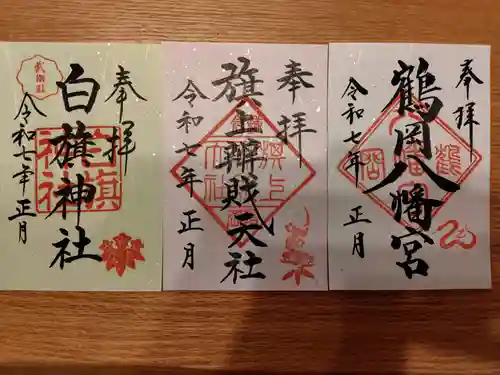 奉拝
鶴岡八幡宮
令和七年 正月
奉拝
旗上辨財天社
令和七年 正月
奉拝
白旗神社
令和七年 正月